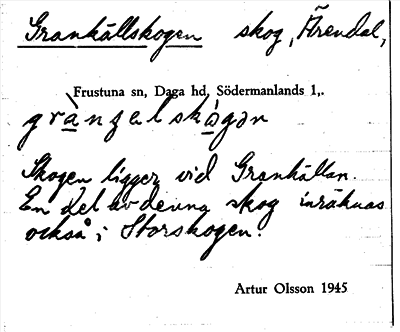 Grankällskogen skog, Ärendal,
Frustuna sn, Daga hd, Södermanlands l,.
grànʒelskó̱gən
Skogen ligger vid Grankällan.
En del av denna skog inräknas
också i Storskogen.
Artur Olsson 1945